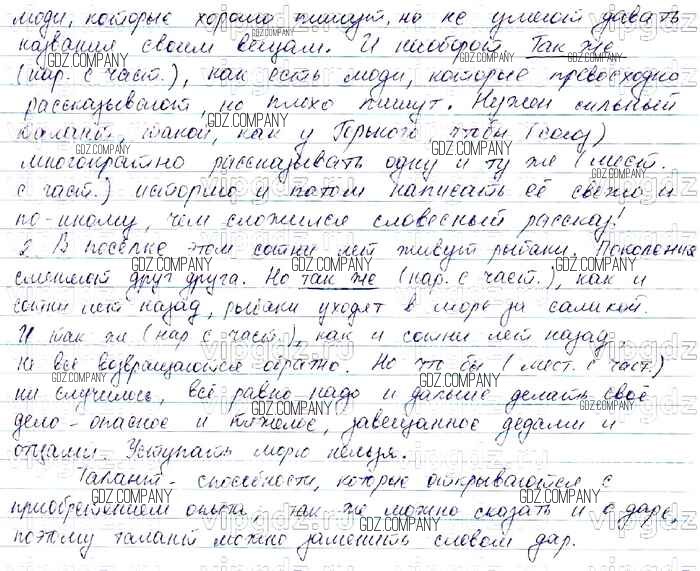 люди, которые хорошо пишут, но не умеют давать
названия своим вещам. И наоборот Так же
(нар. с част.), как есть люди, которые превосходно
рассказывают, но плохо пишут. Нужен сильный
талант, такой, как у Горького, чтобы (союз)
многократно рассказывать одну и ту же (мест.
с част.) историю и потом написать её свежо и
по-иному, чем сложился словесный рассказ!
2. В посёлке этом сотни лет живут рыбаки. Поколения
сменяют друг друга. Но так же (нар. с част.), как и
сотни лет назад, рыбаки уходят в море за салакой.
И так же (нар с част.), как и сотни лет назад,
не все возвращаются обратно. Но что бы (мест. с част.)
ни случилось, всё равно надо и дальше делать своё
дело - опасное и тяжелое, завещанное дедами и
отцами. Уступать морю нельзя.
Талант - способности, которые открываются с
приобретением опыта так же можно сказать и о даре,
поэтому талант можно заменить словом дар.
GDZ.COMPANY
vipgdz.ru